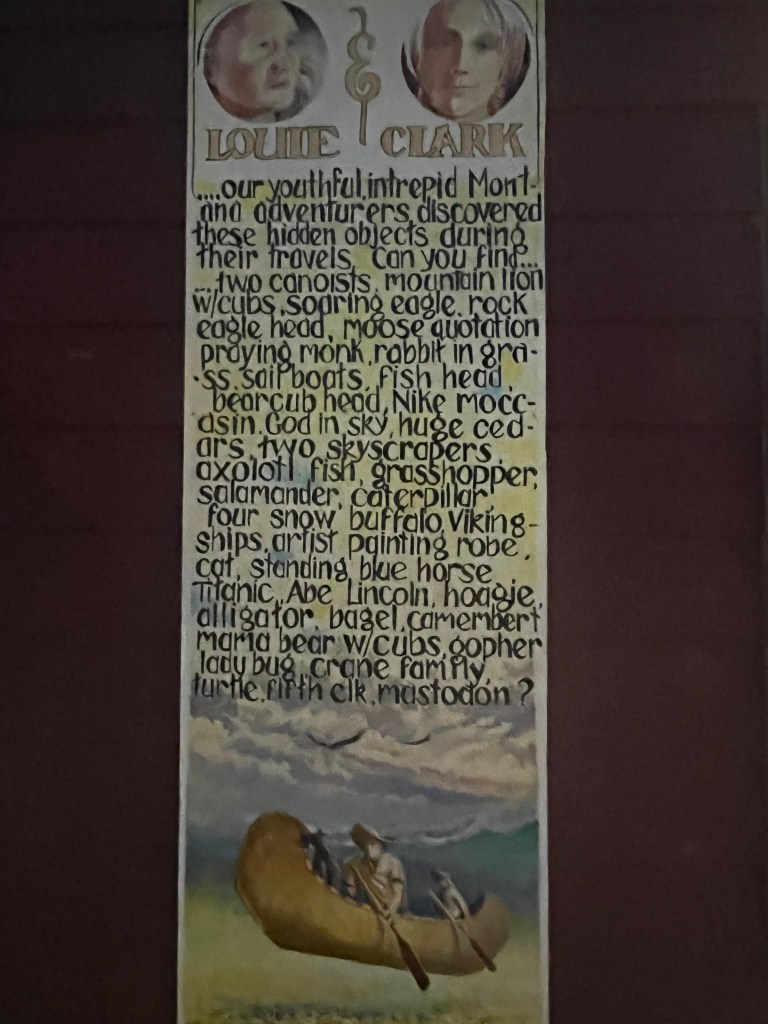 &
LOUIE CLARK
....our youthful, intrepid Mont-
ana adventurers, discovered
these hidden objects during
their travels. Can you find...
...two canoists, mountain lion
w/cubs, soaring eagle, rock
eagle head, moose quotation
praying monk, rabbit in gra-
-ss, sail boats, fish head,
bearcub head, Nike mocc-
asin. God in sky, huge ced-
ars, two skyscrapers,
axolotl fish, grasshopper,
salamander, caterpillar,
four snow buffalo, Viking-
ships, artist painting robe,
cat, standing blue horse
Titanic, Abe Lincoln, hoagie,
alligator, bagel, camembert
mama bear w/cubs, gopher
lady bug, crane family,
turtle, fifth elk, mastodon?